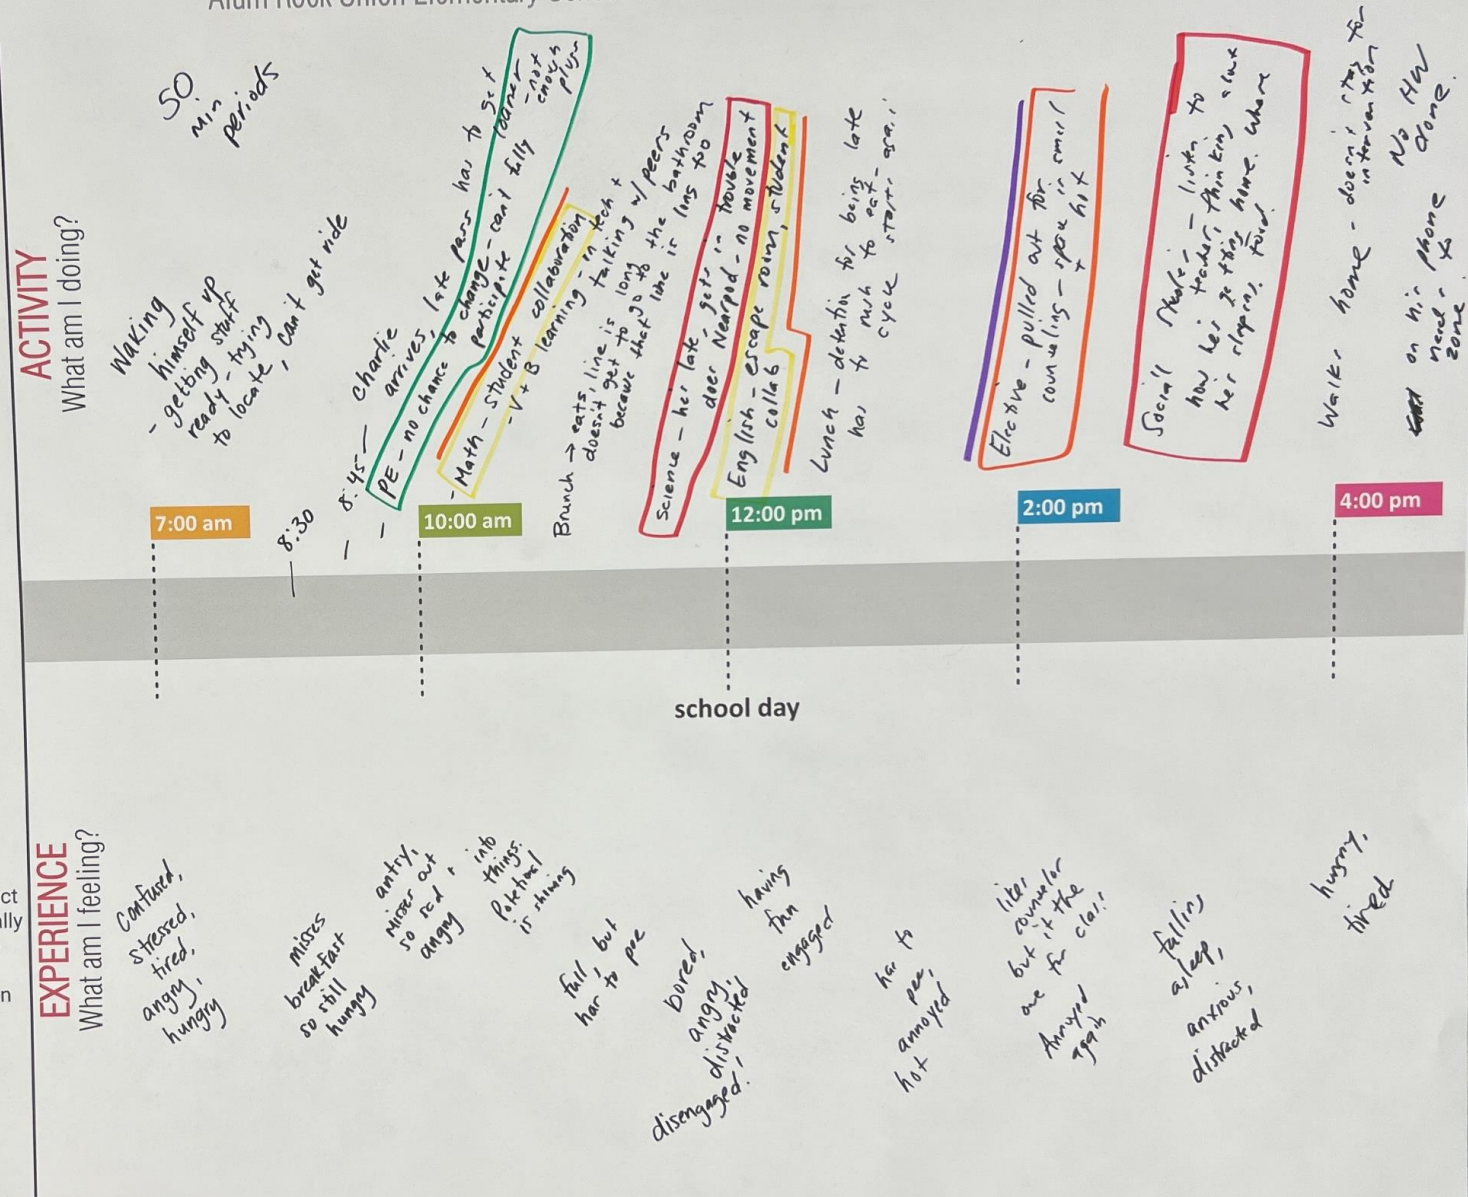 Alum Rock Union Elementary
ACTIVITY
What am I doing?
50
Min
periods
Waking
himself up
- getting stuff
ready - trying
to locate, can't get ride
8:30
8:45 - Charlie
arrives, late pass has to get
PE - no chance to change - can't fully
participate
learner
- not
enough
plugin
- Math - student collaboration
- V + B learning - in tech +
talking w/ peers
Brunch → eats, line is long
doesn't get to go to the bathroom
because that line is long too
Science - he's late, gets in trouble
does Nearpod - no movement
English - escape room, student
collab
Lunch - detention for being late
has to rush to eat -
cycle starts again
Elective - pulled out for
counseling - space is small
+ hot
Social Studies - listen to
teacher, thinking about
how he's getting home. Where
he's sleeping, food.
Walks home - doesn't stay for
intervention
No HW
done.
on his phone
needs to
zone.
7:00 am
10:00 am
12:00 pm
2:00 pm
4:00 pm
school day
EXPERIENCE
What am I feeling?
Confused,
stressed,
tired,
angry,
hungry
misses
breakfast
so still
hungry
antry,
Misses out
so sad,
angry
into
things.
Potential
is showing
full, but
has to pee
bored,
angry,
distracted
disengaged!
having
fun
engaged
has to
pee,
annoyed
hot
likes
counselor
but it the
one fun class!
Annoyed
again
falling
asleep,
anxious,
distracted
hungry,
tired
ct
lly
n